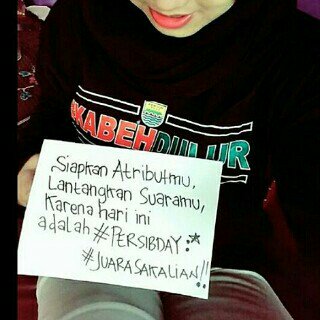 KABEHDULUR
Siapkan Atributmu,
Lantangkan Suaramu,
Karena hari ini
adalah #PERSIBDAY :*
#JUARASAKALIAN!!